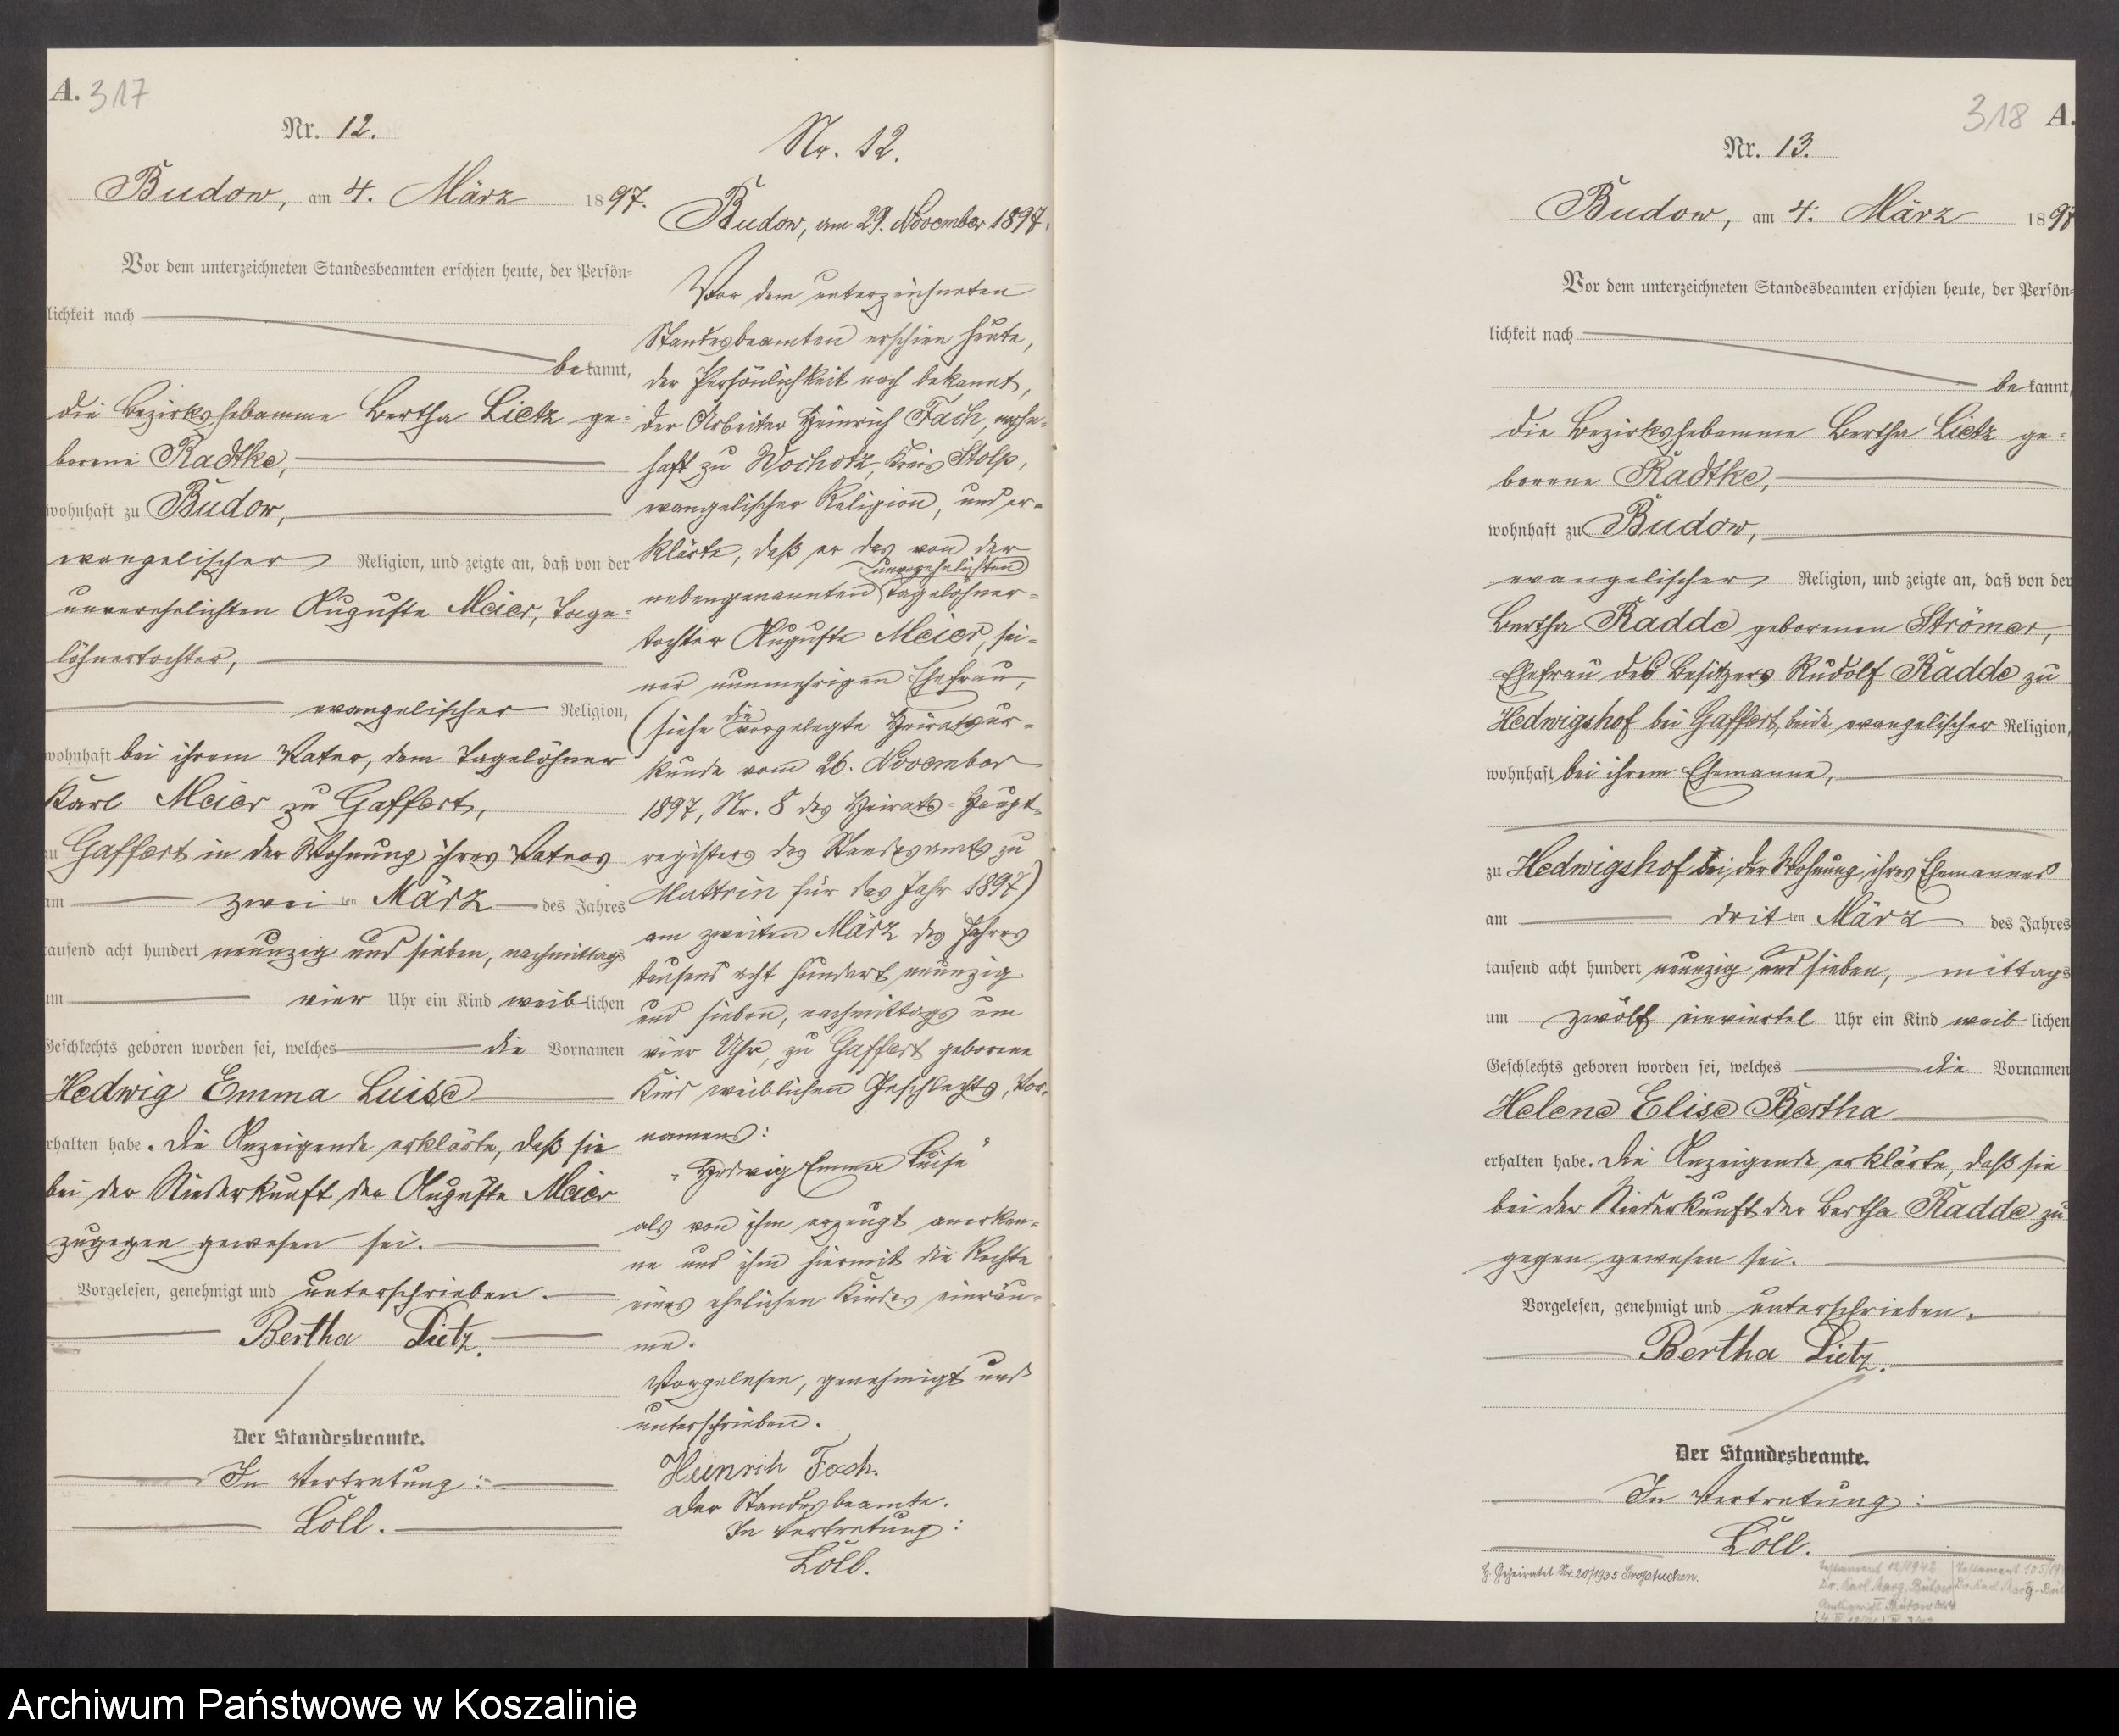 A. 317
Nr. 12.
Budow, am 4. März 1897.
Vor dem unterzeichneten Standesbeamten erschien heute, der Persön=
lichkeit nach
bekannt,
die Bezirkshebamme Bertha Lietz ge=
borene Radtke,
wohnhaft zu Budow,
evangelischer Religion, und zeigte an, daß von der
unverehelichten Auguste Meier, Tage=
löhnertochter,
evangelischer Religion,
wohnhaft bei ihrem Vater, dem Tagelöhner
Karl Meier zu Gaffert,
zu Gaffert in der Wohnung ihres Vaters
am zweiten März des Jahres
tausend acht hundert neunzig und sieben, nachmittags
um vier Uhr ein Kind weiblichen
Geschlechts geboren worden sei, welches die Vornamen
Hedwig Emma Luise
erhalten habe. Die Anzeigende erklärte, daß sie
bei der Niederkunft der Auguste Meier
zugegen gewesen sei.
Vorgelesen, genehmigt und unterschrieben.
Bertha Lietz.
Der Standesbeamte.
In Vertretung:
Löll.
Nr. 12.
Budow, am 29. November 1897.
Vor dem unterzeichneten
Standesbeamten erschien heute,
der Persönlichkeit nach bekannt,
der Arbeiter Heinrich Fach, wohn=
haft zu Wochotz, Kreis Stolp,
evangelischer Religion, und er=
klärte, daß er das von der
unverehelichten
nebengenannten Tagelöhner=
tochter Auguste Meier, sei=
ner nunmehrigen Ehefrau,
(siehe die vorgelegte Heiratsur=
kunde vom 26. November
1897, Nr. 8 des Heirats=Haupt=
registers des Standesamts zu
Muttrin für das Jahr 1897)
am zweiten März des Jahres
tausend acht hundert neunzig
und sieben, nachmittags um
vier Uhr, zu Gaffert geborene
Kind weiblichen Geschlechts, Vor=
namens:
"Hedwig Emma Luise"
als von ihm erzeugt anerken=
ne und ihm hiermit die Rechte
eines ehelichen Kindes einräu=
me.
Vorgelesen, genehmigt und
unterschrieben.
Heinrich Fach.
Der Standesbeamte.
In Vertretung:
Löll.
318 A.
Nr. 13.
Budow, am 4. März 1897
Vor dem unterzeichneten Standesbeamten erschien heute, der Persön=
lichkeit nach
bekannt,
die Bezirkshebamme Bertha Lietz ge=
borene Radtke,
wohnhaft zu Budow,
evangelischer Religion, und zeigte an, daß von der
Bertha Radde geborenen Strömer,
Ehefrau des Besitzers Rudolf Radde zu
Hedwigshof bei Gaffert, beide evangelischer Religion,
wohnhaft bei ihrem Ehemanne,
zu Hedwigshof bei der Wohnung ihres Ehemannes
am dritten März des Jahres
tausend acht hundert neunzig und sieben, mittags
um zwölf einviertel Uhr ein Kind weiblichen
Geschlechts geboren worden sei, welches die Vornamen
Helene Elise Bertha
erhalten habe. Die Anzeigende erklärte, daß sie
bei der Niederkunft der Bertha Radde zu
gegen gewesen sei.
Vorgelesen, genehmigt und unterschrieben.
Bertha Lietz.
Der Standesbeamte.
In Vertretung:
Löll.
Geheiratet Nr. 20/1935 Großtuchen.
Testament 12/1942
Testament 105/19
Dr. Karl Marg, Bütow
Dr. Karl Marg-Büt
Amtsgericht Bütow
Archiwum Państwowe w Koszalinie